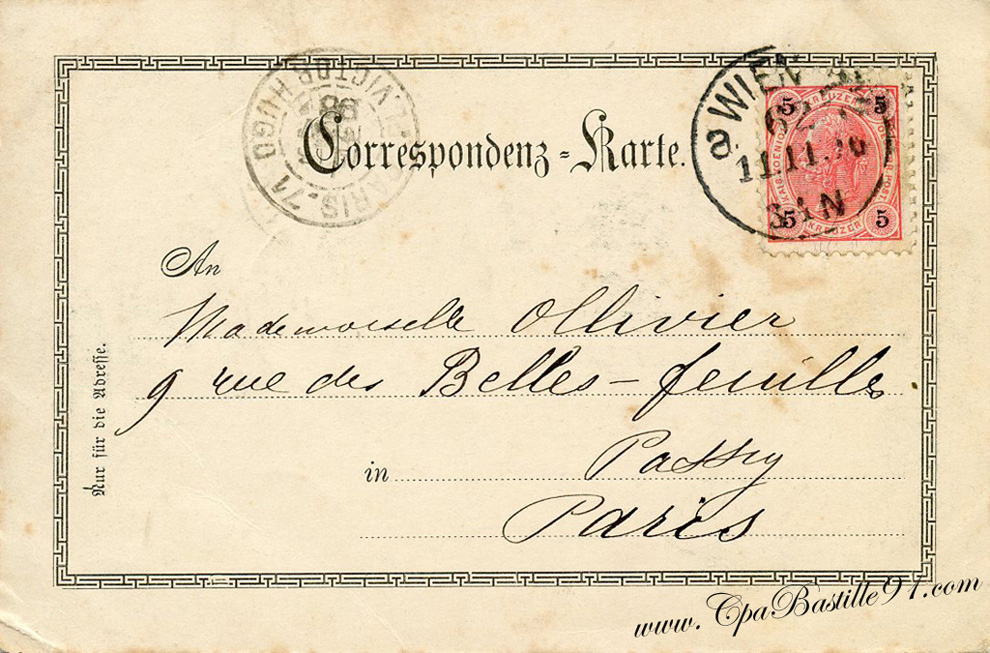 Correspondenz-Karte.
PARIS-71
VICTOR HUGO
98
WIEN
11.11.
8
5 KREUZER 5
5 KREUZER 5
An
Mademoiselle Ollivier
9 rue des Belles-feuilles
in Passy
Paris
Nur für die Adresse.
www.CpaBastille91.com